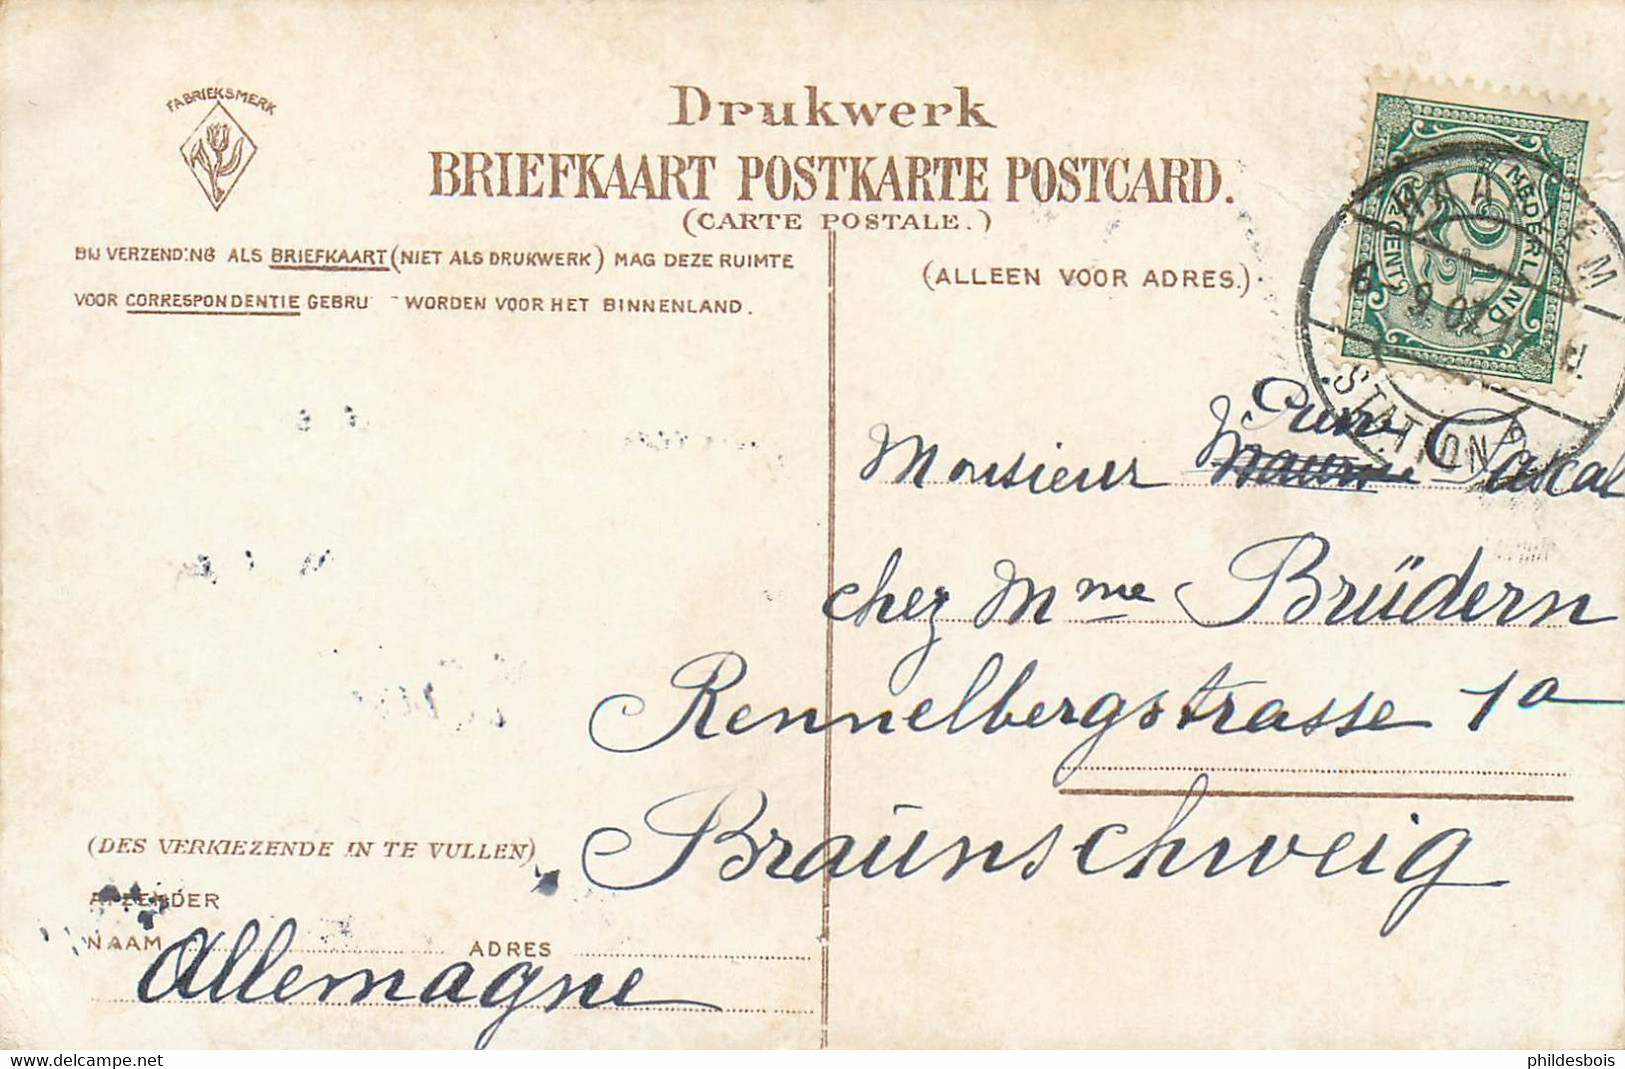 FABRIEKSMERK
Drukwerk
BRIEFKAART POSTKARTE POSTCARD.
(CARTE POSTALE.)
BIJ VERZENDING ALS BRIEFKAART (NIET ALS DRUKWERK) MAG DEZE RUIMTE
VOOR CORRESPONDENTIE GEBRU WORDEN VOOR HET BINNENLAND.
(ALLEEN VOOR ADRES.)
NEDERLAND
2½ CENT
STATION
Monsieur Pascal
chez Mme Brüdern
Rennelbergstrasse 1a
Braunschweig
(DES VERKIEZENDE IN TE VULLEN)
AFZENDER
NAAM ADRES
Allemagne
https://www.delcampe.net
phildesbois